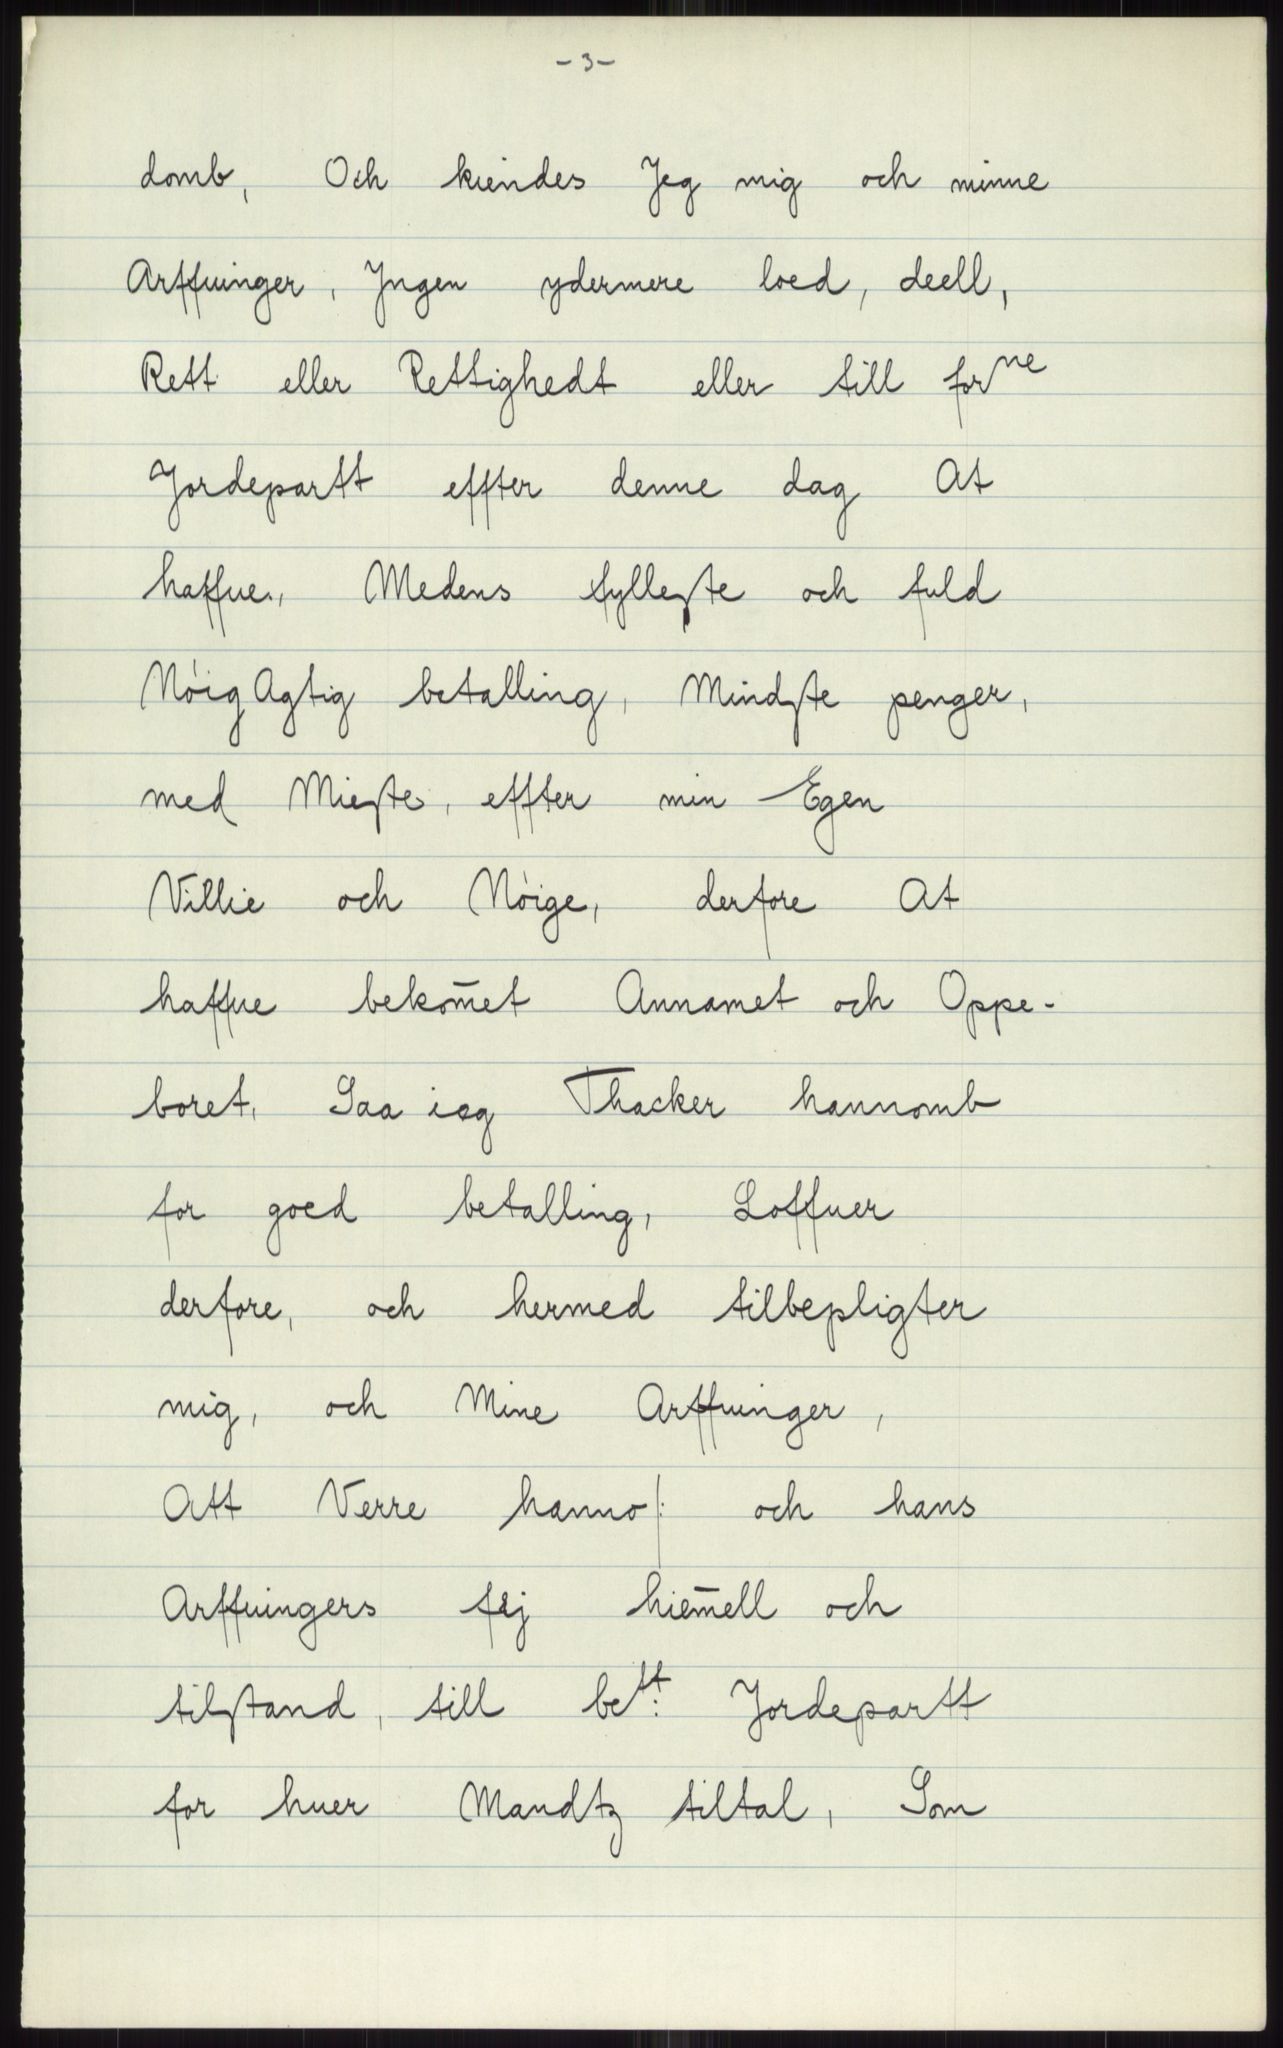 - 3 -
domb, Och kiendes Jeg mig och minne
Arffuinger, Jngen ydermere loed, deell,
Rett eller Rettighedt eller till forne
Jordepartt effter denne dag At
haffue., Medens fylleste och fuld
Nóig Agtig betalling, Mindste penger,
med Mieste, effter min Egen
Villie och Nóige, derfore At
haffue bekom̄et Annamet och Oppe-
boret. Saa ieg Thacker hannomb
for goed betalling, Loffuer
derfore, och hermed tilbepligter
mig, och Mine Arffuinger,
Att Verre hanno/: och hans
Arffuingers frj hiem̄ell och
tilstand, till bett: Jordepartt
for huer Mandtz tiltal, Som